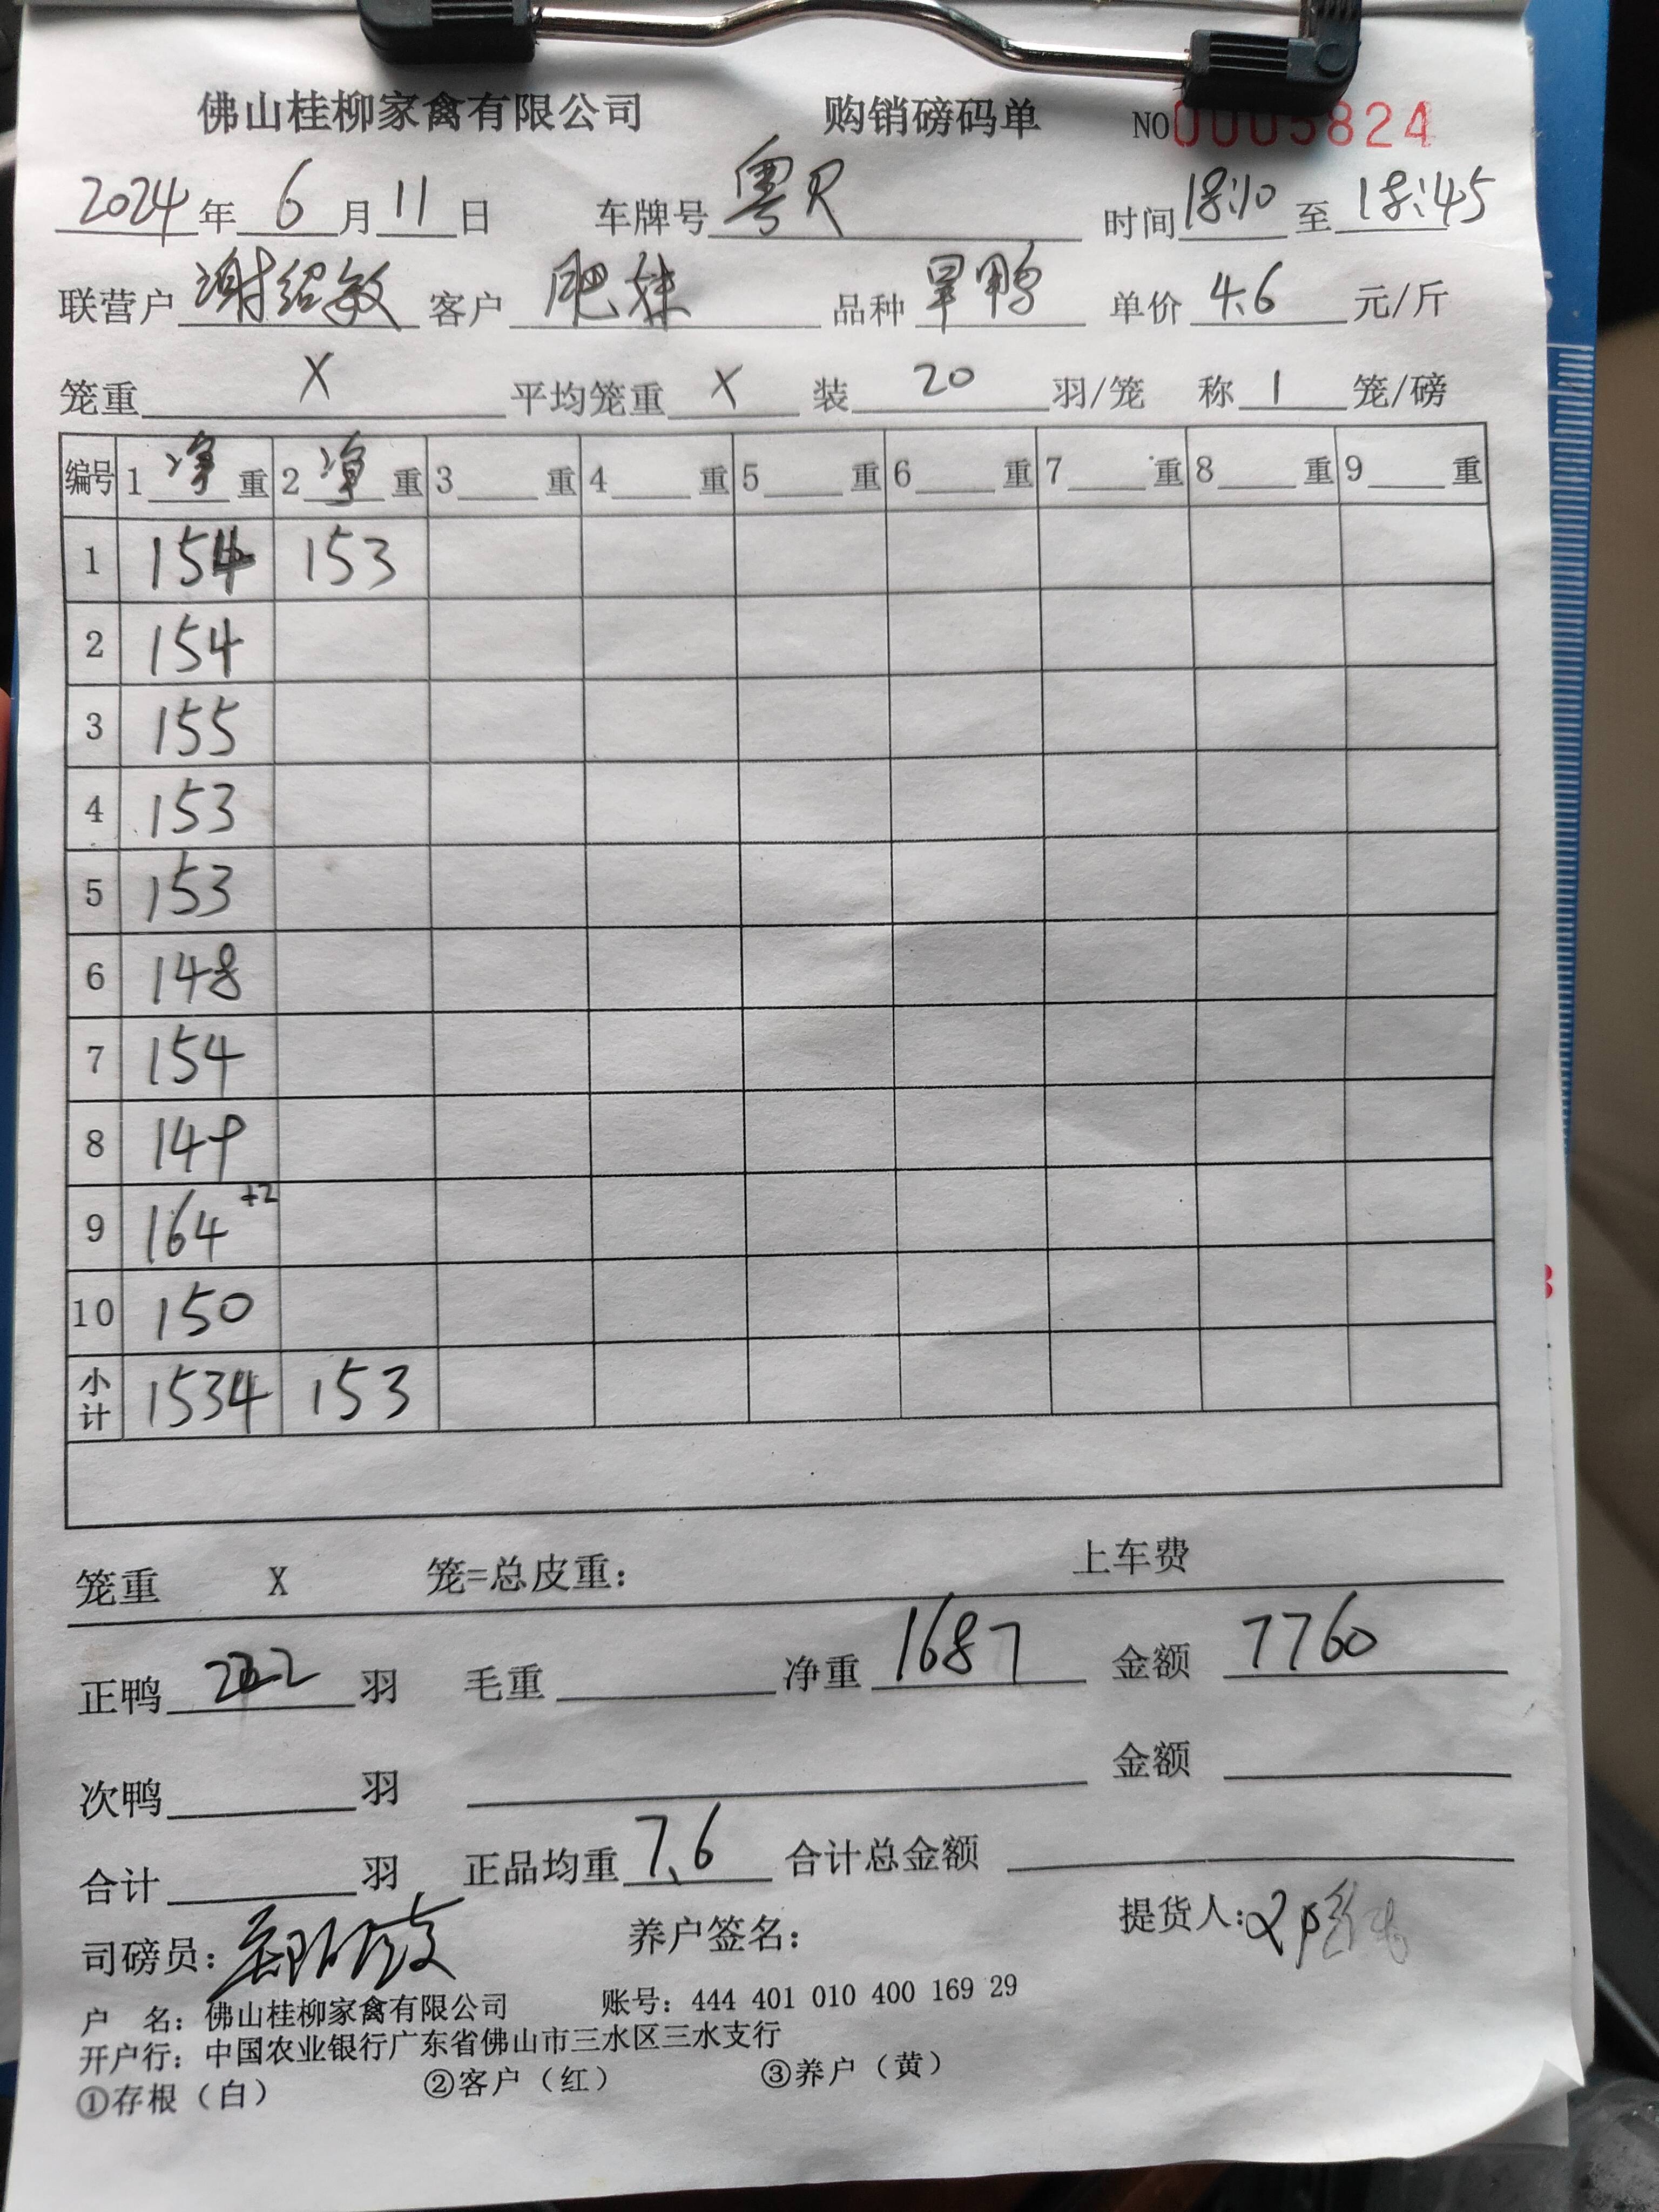 佛山桂柳家禽有限公司 购销磅码单 NO0005824
2024年6月11日 车牌号粤R 时间18:10至18:45
联营户谢绍敏 客户肥妹 品种旱鸭 单价4.6元/斤
笼重X 平均笼重X 装20羽/笼 称1笼/磅
编号 1净重 2净重 3重 4重 5重 6重 7重 8重 9重
1 154 153
2 154
3 155
4 153
5 153
6 148
7 154
8 149
9 164 +2
10 150
小计 1534 153
笼重 X 笼=总皮重: 上车费
正鸭222羽 毛重 净重1687 金额7760
次鸭 羽 金额
合计 羽 正品均重7.6 合计总金额
司磅员: 养户签名: 提货人:
户 名: 佛山桂柳家禽有限公司 账号: 444 401 010 400 169 29
开户行: 中国农业银行广东省佛山市三水区三水支行
①存根（白） ②客户（红） ③养户（黄）